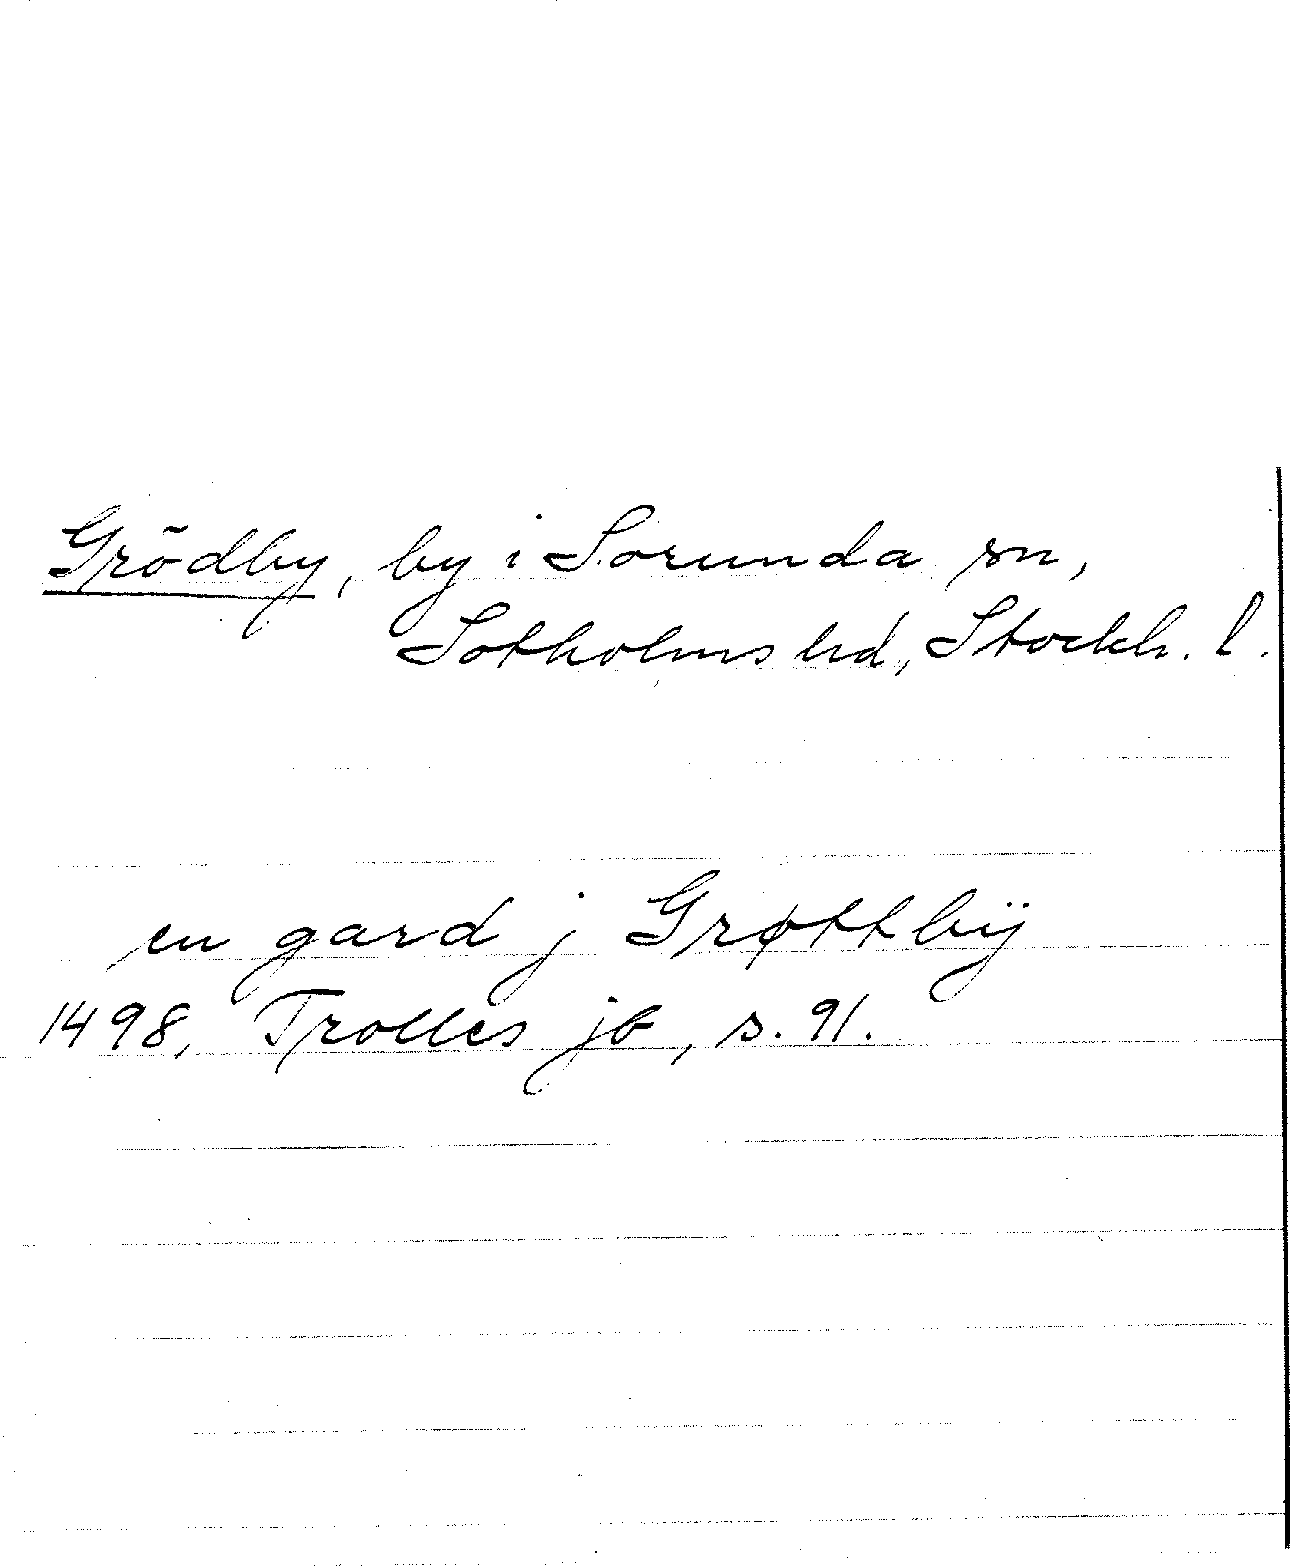 Grödby, by i Sorunda sn,
Sotholms hd, Stockh. l.
en gard j Grøttbÿ
1498, Trolles jb, s. 91.